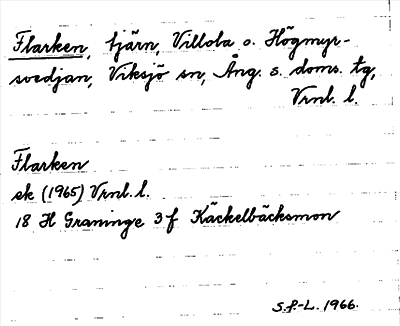 Flarken, tjärn, Villola o. Högmyr-
svedjan, Viksjö sn, Ång. s. doms. tg,
Vrnl. l.
Flarken
ek (1965) Vrnl. l.
18 H Graninge 3 f Käckelbäcksmon
S.f.-L. 1966.